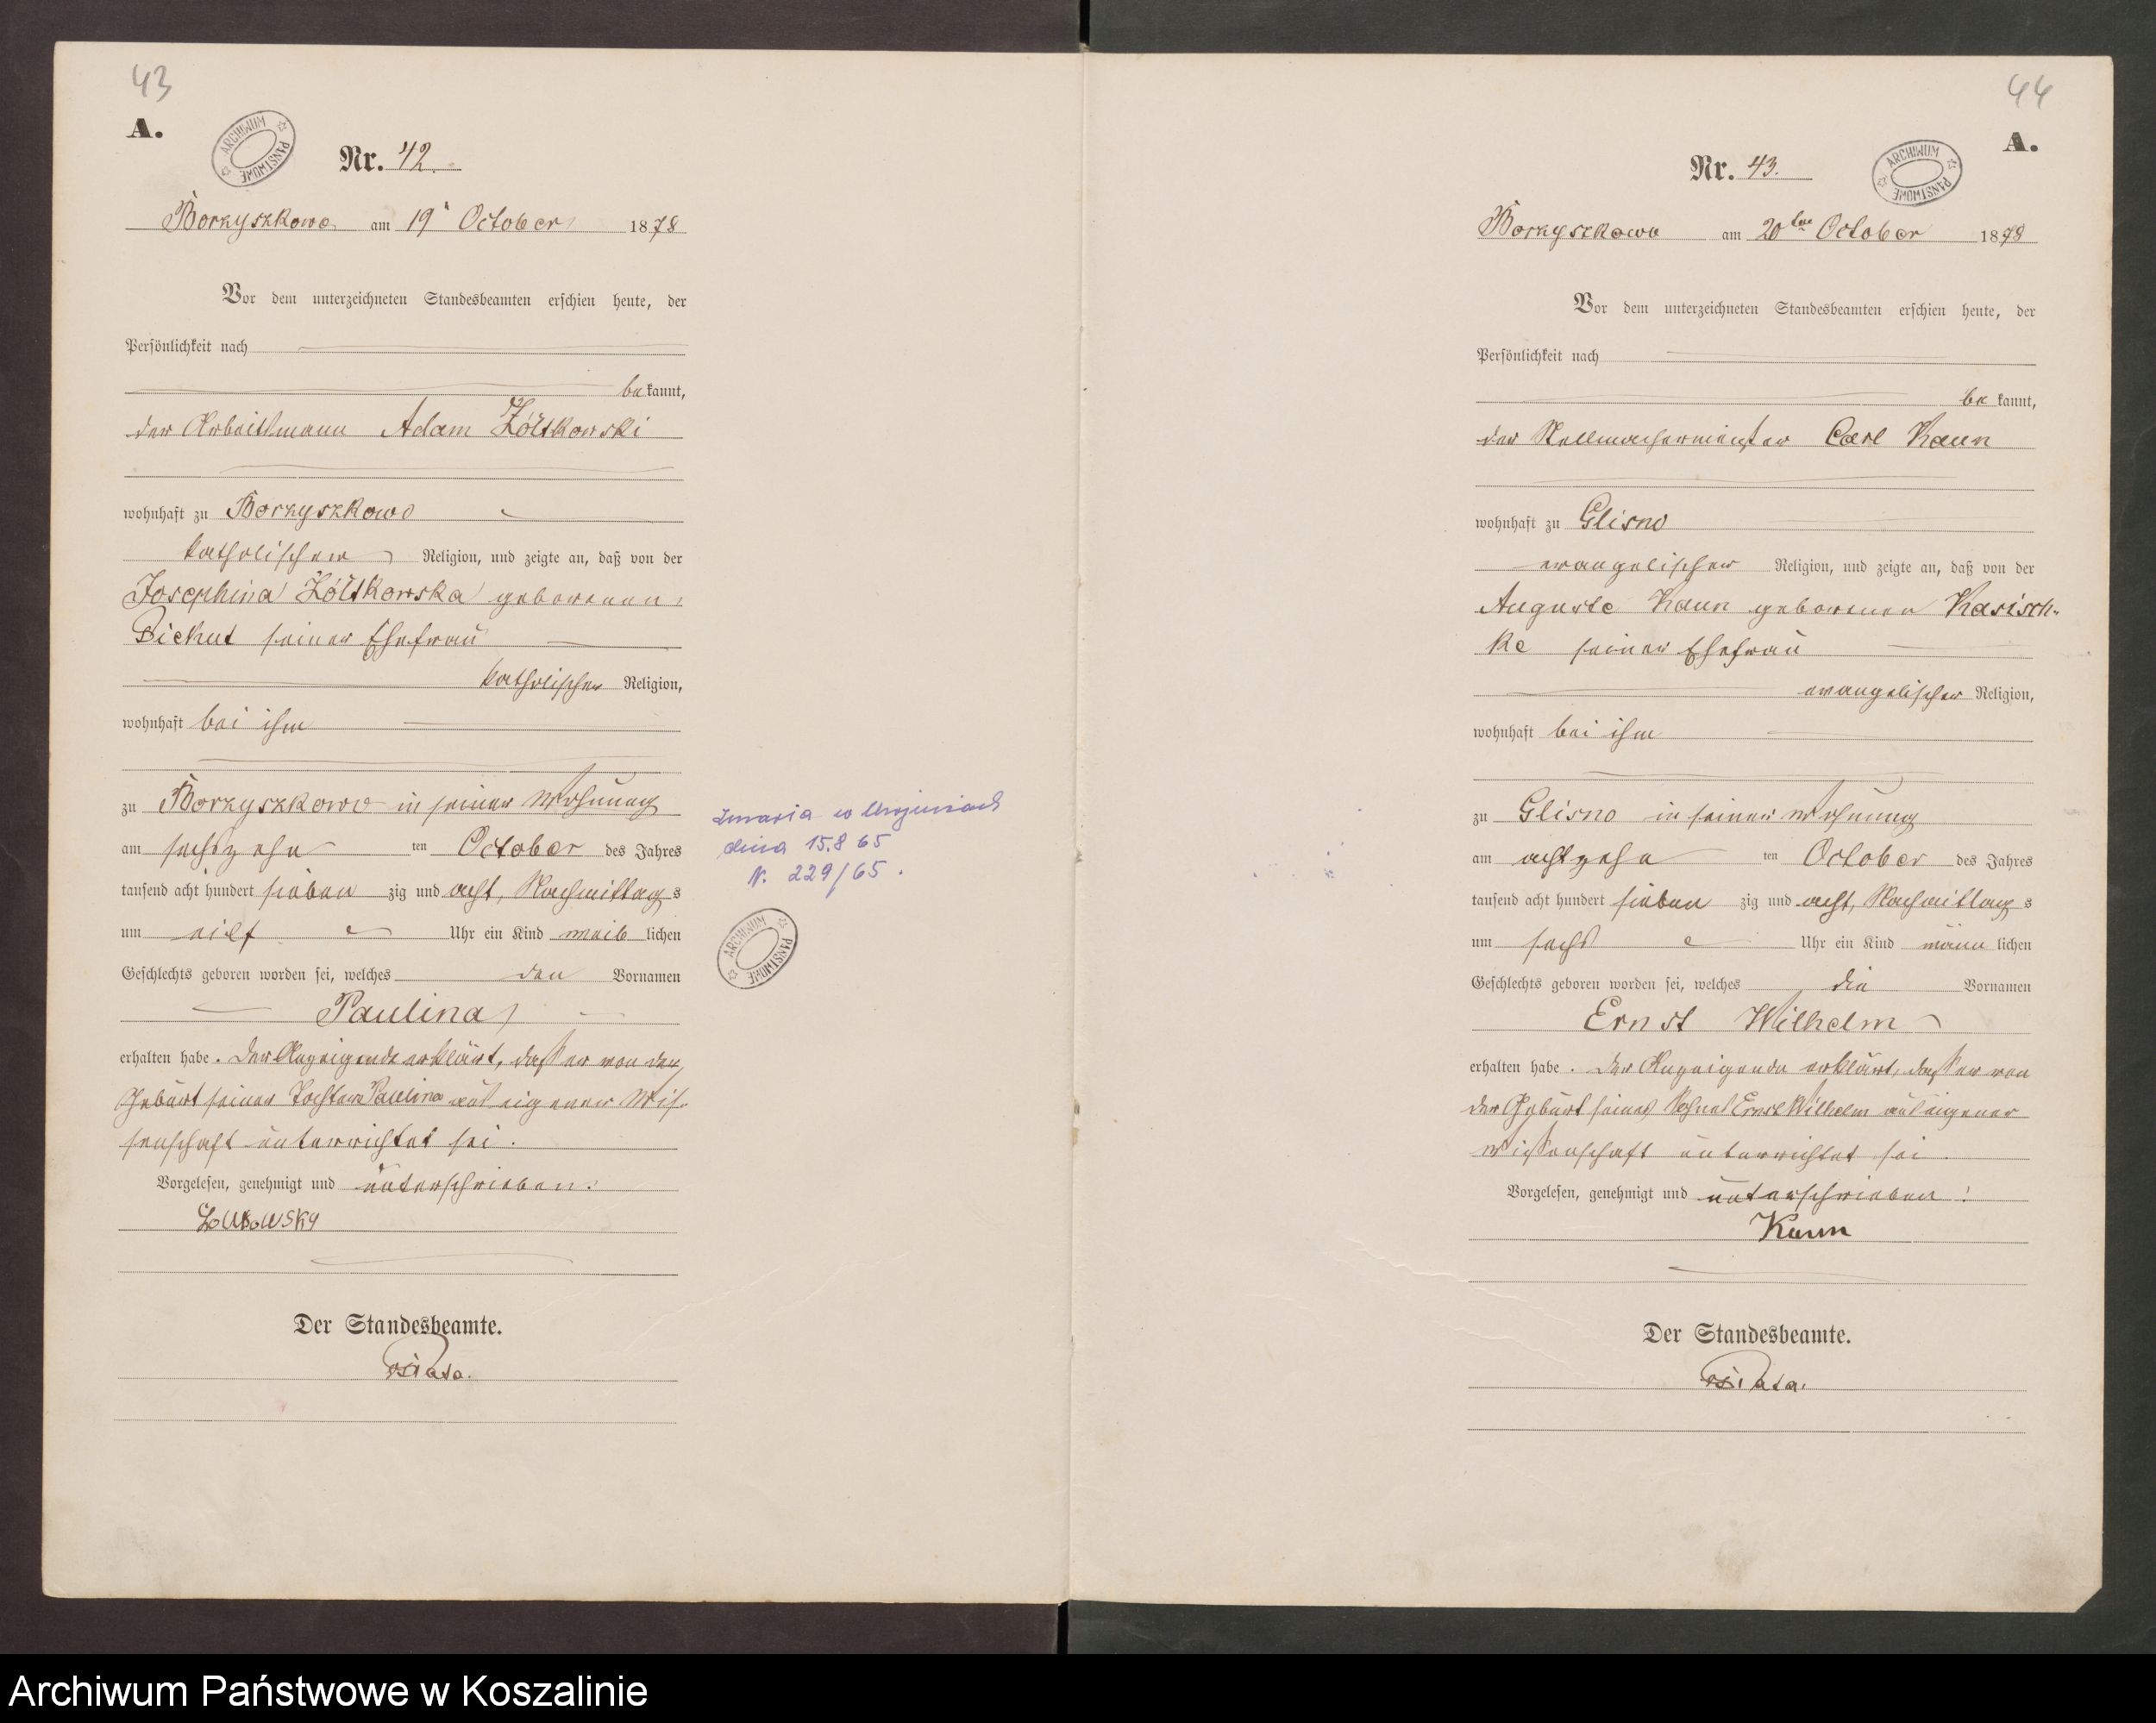 43
A.
ARCHIWUM PAŃSTWOWE
Nr. 42.
Borzyszkowo am 19 October 1878
Vor dem unterzeichneten Standesbeamten erschien heute, der
Persönlichkeit nach
bekannt,
der Arbeitsmann Adam Żółtkowski
wohnhaft zu Borzyszkowo
katholischer Religion, und zeigte an, daß von der
Josephina Żółtkowska geborenen
seiner Ehefrau
katholischer Religion,
wohnhaft bei ihm
zu Borzyszkowo in seiner Wohnung
am sechszehn ten October des Jahres
tausend acht hundert sieben zig und acht, Nachmittags
um eilf Uhr ein Kind weiblichen
Geschlechts geboren worden sei, welches den Vornamen
Paulina
erhalten habe. Der Anzeigende erklärt, daß er von der
Geburt seiner Tochter Paulina aus eigener Wis-
senschaft unterrichtet sei.
Vorgelesen, genehmigt und unterschrieben.
Der Standesbeamte.
w
dnia 15.8 65
N. 229/65.
ARCHIWUM PAŃSTWOWE
44
A.
ARCHIWUM PAŃSTWOWE
Nr. 43.
Borzyszkowo am 20ten October 1878
Vor dem unterzeichneten Standesbeamten erschien heute, der
Persönlichkeit nach
bekannt,
der Stellmachermeister Carl Kaun
wohnhaft zu Glisno
evangelischer Religion, und zeigte an, daß von der
Auguste Kaun geborenen Kasisch-
ke seiner Ehefrau
evangelischer Religion,
wohnhaft bei ihm
zu Glisno in seiner Wohnung
am achtzehn ten October des Jahres
tausend acht hundert sieben zig und acht, Nachmittags
um sechs Uhr ein Kind männlichen
Geschlechts geboren worden sei, welches die Vornamen
Ernst Wilhelm
erhalten habe. Der Anzeigende erklärt, daß er von
der Geburt seines Sohnes Ernst Wilhelm aus eigener
Wissenschaft unterrichtet sei.
Vorgelesen, genehmigt und unterschrieben!
Kaun
Der Standesbeamte.
Archiwum Państwowe w Koszalinie